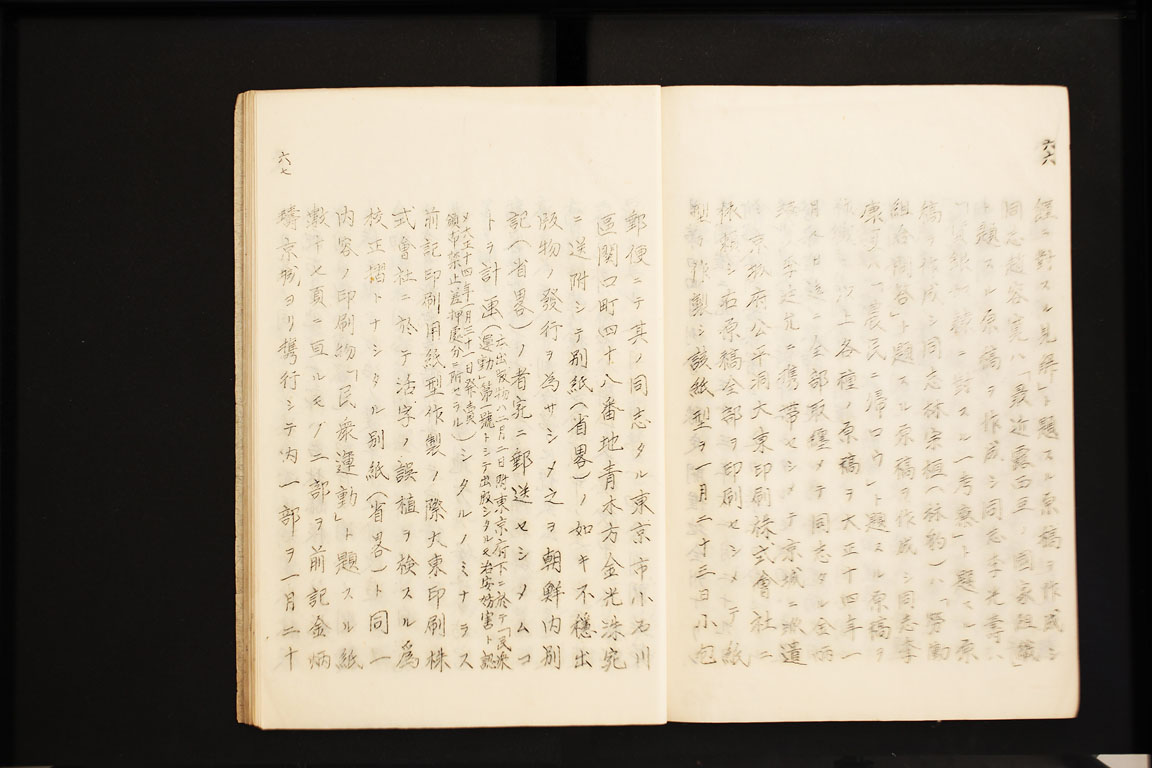 六六
經ニ對スル見解」ト題スル原稿ヲ作成シ
同志趙容寛ハ「最近露西亞ノ國家組織」
ト題スル原稿ヲ作成シ同志李光壽ハ
ニ對スル一考察」ト題スル原
稿ヲ作成シ同志林宗桓(林豹)ハ「勞働
組合問答」ト題スル原稿ヲ作成シ同志李
康ハ「農民ニ歸ロウ」ト題スル原稿ヲ
作成シ以上各種ノ原稿ヲ大正十四年一
月 全部取纒メテ同志タル金炳
ニ携帶セシメテ京城ニ派遣
シ京城府公平洞大東印刷株式會社ニ
依頼シ右原稿全部ヲ印刷セシメテ紙
型ヲ作製シ該紙型ヲ一月二十三日小包
六七
郵便ニテ其ノ同志タル東京市小石川
區関口町四十八番地青木方金光洙宛
ニ送附シテ別紙(省畧)ノ如キ不穩出
版物ノ發行ヲ為サシメ之ヲ朝鮮内別
記(省畧)ノ者宛ニ郵送セシメムコ
トヲ計画(右出版物ハ二月二日附東京府下ニ於テ「民衆
運動」第一號トシテ出版シタルモ治安妨害ト認
メ大正十四年一月三十一日発賣
頒布禁止差押處分ニ附セラル)シタルノミナラス
前記印刷用紙型作製ノ際大東印刷株
式會社ニ於テ活字ノ誤植ヲ検スル為
校正摺トナシタル別紙(省畧)ト同一
内容ノ印刷物「民衆運動」ト題スル紙
數十七頁ニ亘ルモノ二部ヲ前記金炳
璹京城ヨリ携行シテ内一部ヲ一月二十